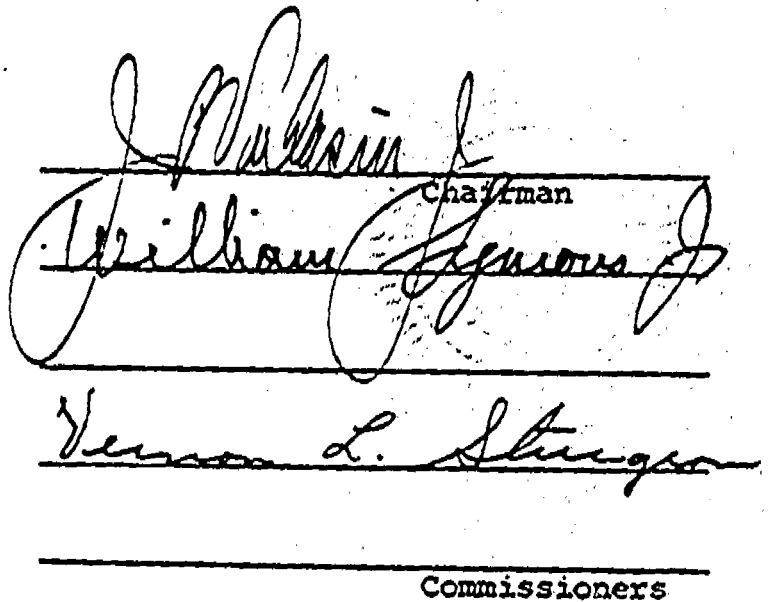 J P Vukasin Jr
Chairman
William Symons Jr
Vernon L. Sturgeon
Commissioners